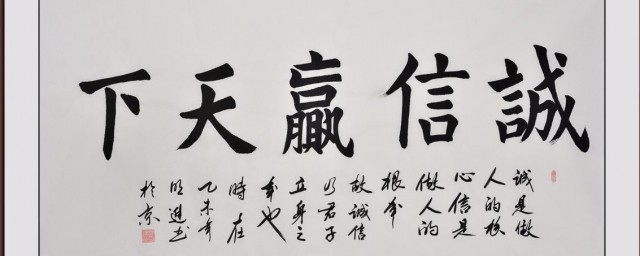 誠信贏天下
誠是做
人的核
心信是
做人的
根本
故誠信
乃君子
立身之
本也
時在
乙未年
明進书
於京